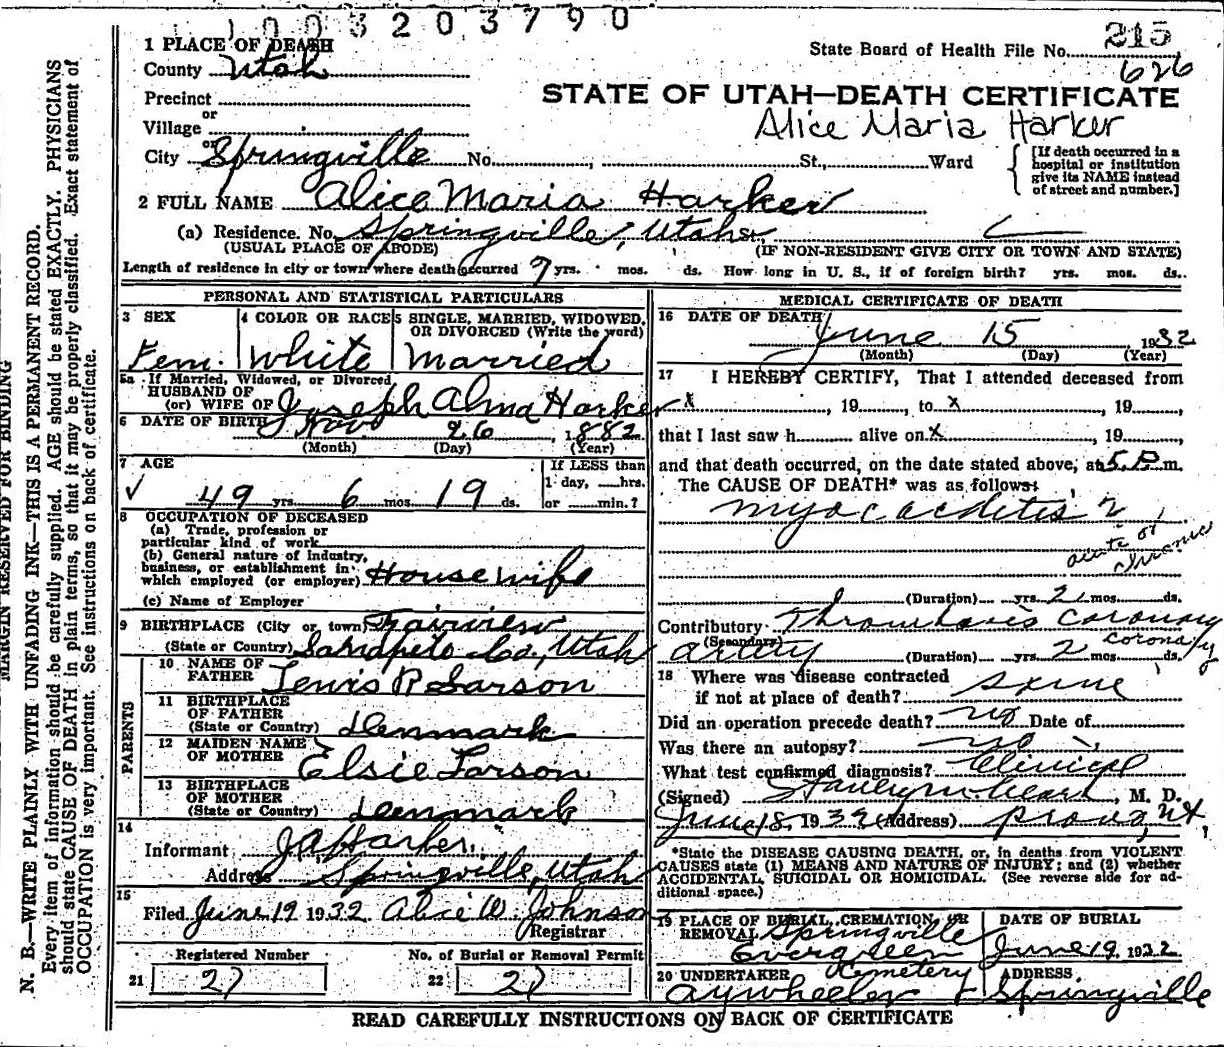 1003203790
1 PLACE OF DEATH
State Board of Health File No. 215
County Utah
626
Precinct
STATE OF UTAH—DEATH CERTIFICATE
or
Village
Alice Maria Harker
or
City Springville No. , St., Ward
[If death occurred in a
hospital or institution
give its NAME instead
of street and number.]
2 FULL NAME Alice Maria Harker
(a) Residence. No. Springville, Utah
(USUAL PLACE OF ABODE) (IF NON-RESIDENT GIVE CITY OR TOWN AND STATE)
Length of residence in city or town where death occurred 9 yrs. mos. ds. How long in U. S., if of foreign birth? yrs. mos. ds.
PERSONAL AND STATISTICAL PARTICULARS
3 SEX 4 COLOR OR RACE 5 SINGLE, MARRIED, WIDOWED,
OR DIVORCED (Write the word)
Fem. White Married
5a If Married, Widowed, or Divorced
HUSBAND OF
(or) WIFE OF Joseph Alma Harker
6 DATE OF BIRTH Nov 26, 1882
(Month) (Day) (Year)
7 AGE If LESS than
1 day, hrs.
49 yrs. 6 mos. 19 ds. or min.?
8 OCCUPATION OF DECEASED
(a) Trade, profession or
particular kind of work
(b) General nature of industry,
business, or establishment in
which employed (or employer) Housewife
(c) Name of Employer
9 BIRTHPLACE (City or town) Fairview
(State or Country) Sanapete Co., Utah
PARENTS
10 NAME OF
FATHER Lewis P Larson
11 BIRTHPLACE
OF FATHER
(State or Country) Denmark
12 MAIDEN NAME
OF MOTHER Elsie Larson
13 BIRTHPLACE
OF MOTHER
(State or Country) Denmark
14
Informant J A Harker
Address Springville, Utah
15
Filed June 19 1932 Alice W. Johnson
Registrar
Registered Number No. of Burial or Removal Permit
21 27 22 27
MEDICAL CERTIFICATE OF DEATH
16 DATE OF DEATH
June 15, 1932
(Month) (Day) (Year)
17 I HEREBY CERTIFY, That I attended deceased from
x , 19 , to x , 19 ,
that I last saw h alive on x , 19 ,
and that death occurred, on the date stated above, at 5 P. m.
The CAUSE OF DEATH* was as follows:
myocarditis
acute or
chronic
(Duration) yrs. 2 mos. ds.
Contributory Thrombosis Coronary
(Secondary) artery
coronary
(Duration) yrs. 2 mos. ds.
18 Where was disease contracted
if not at place of death?
Did an operation precede death? no Date of
Was there an autopsy? no
What test confirmed diagnosis? Clinical
(Signed) Stanley M. Clark, M. D.
June 18, 1932 (Address) Provo, Ut.
*State the DISEASE CAUSING DEATH, or, in deaths from VIOLENT
CAUSES state (1) MEANS AND NATURE OF INJURY; and (2) whether
ACCIDENTAL, SUICIDAL OR HOMICIDAL. (See reverse side for ad-
ditional space.)
19 PLACE OF BURIAL, CREMATION, OR
REMOVAL Springville
Evergreen
Cemetery
DATE OF BURIAL
June 19, 1932
20 UNDERTAKER ADDRESS
A Y Wheeler Springville
READ CAREFULLY INSTRUCTIONS ON BACK OF CERTIFICATE
MARGIN RESERVED FOR BINDING
N. B.—WRITE PLAINLY WITH UNFADING INK—THIS IS A PERMANENT RECORD.
Every item of information should be carefully supplied. AGE should be stated EXACTLY. PHYSICIANS
should state CAUSE OF DEATH in plain terms, so that it may be properly classified. Exact statement of
OCCUPATION is very important. See instructions on back of certificate.